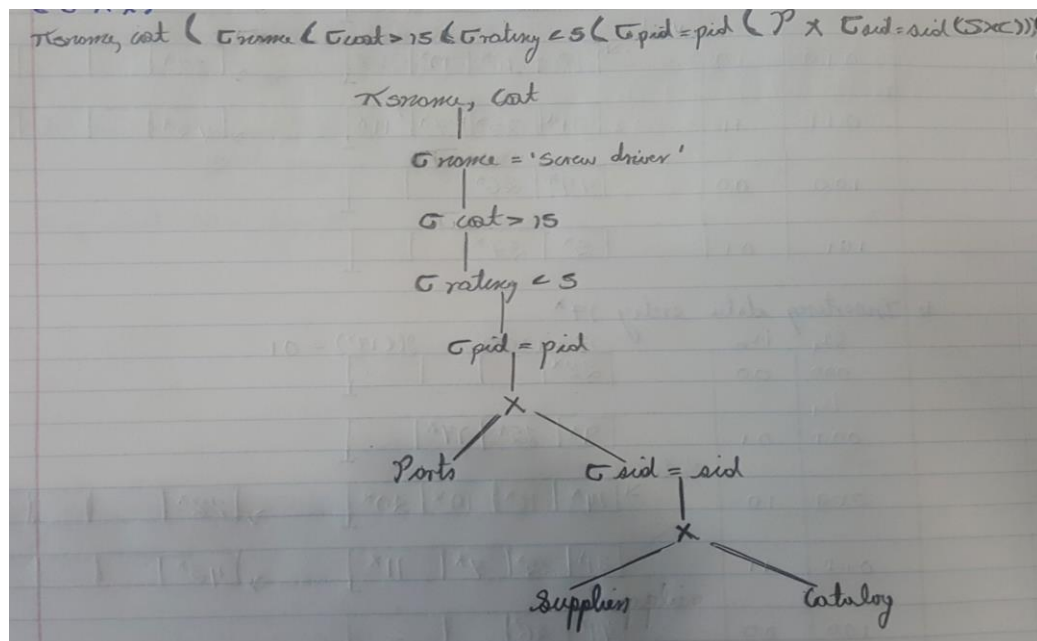 πsname, cost (σname (σcost > 15 (σrating < 5 (σpid = pid (P × σsid = sid (S×C)))
πsname, cost
σ name = 'screw driver'
σ cost > 15
σ rating < 5
σ pid = pid
×
Parts σ sid = sid
×
Suppliers Catalog